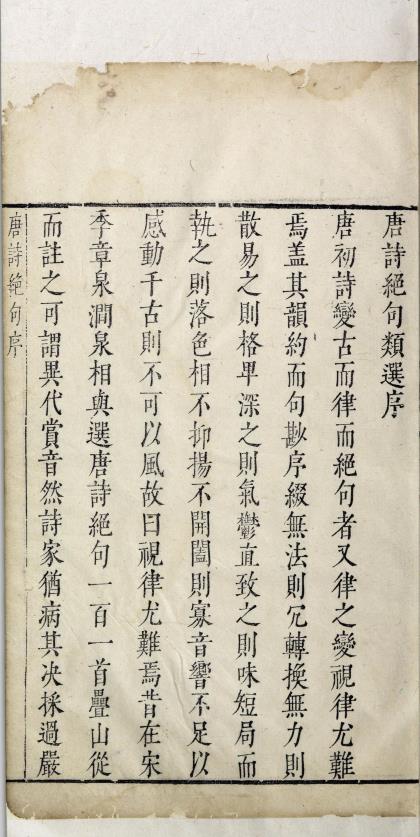 唐詩絕句類選序
唐初詩變古而律而絕句者又律之變視律尤難
焉盖其韻約而句尠序綴無法則冗轉換無力則
散易之則格卑深之則氣鬱直致之則味短局而
執之則落色相不抑揚不開闔則寡音響不足以
感動千古則不可以風故曰視律尤難焉昔在宋
季章泉澗泉相與選唐詩絕句一百一首疊山從
而註之可謂異代賞音然詩家猶病其决採過嚴
唐詩絕句序